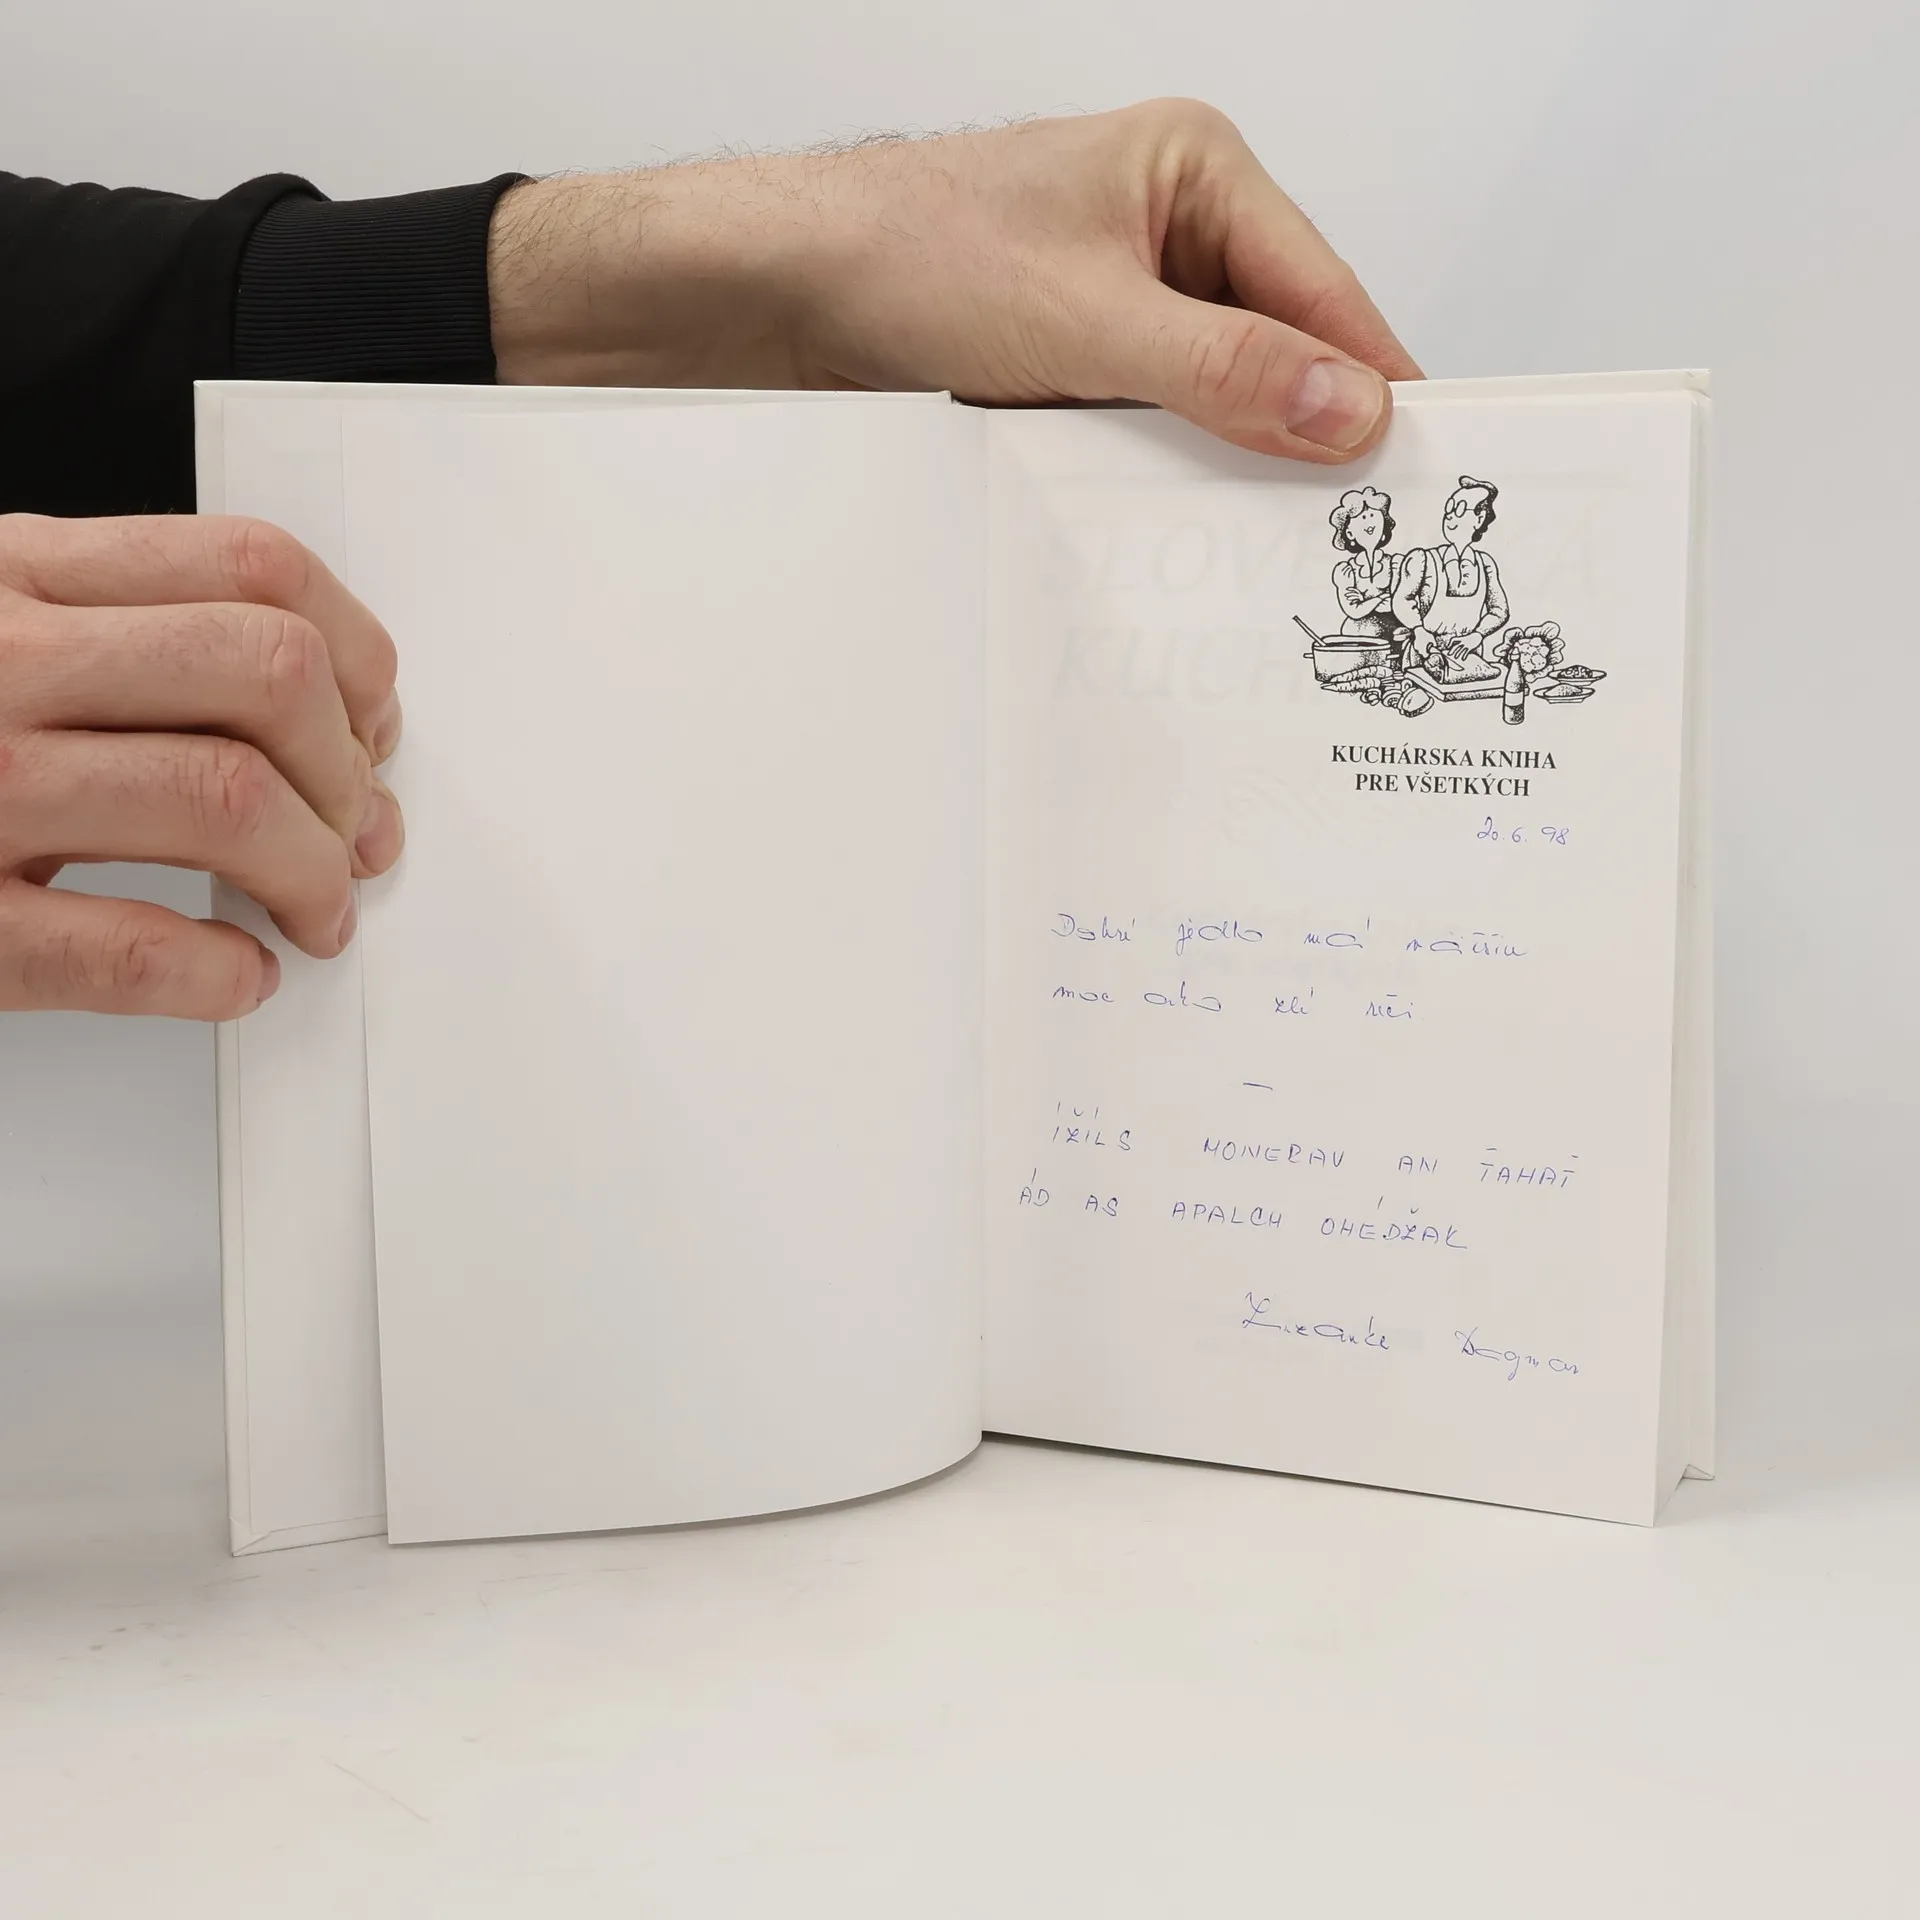 SLOVENSKÁ
KUCHÁRKA
KUCHÁRSKA KNIHA
PRE VŠETKÝCH
20. 6. 98
Dobré jedlo má väčšiu
moc ako zlé reči
—
ÍŽÍLS MONERAV AN ŤAHAŤ
ÁD AS APALCH OHÉDŽAK
Zuzanke Dagmar